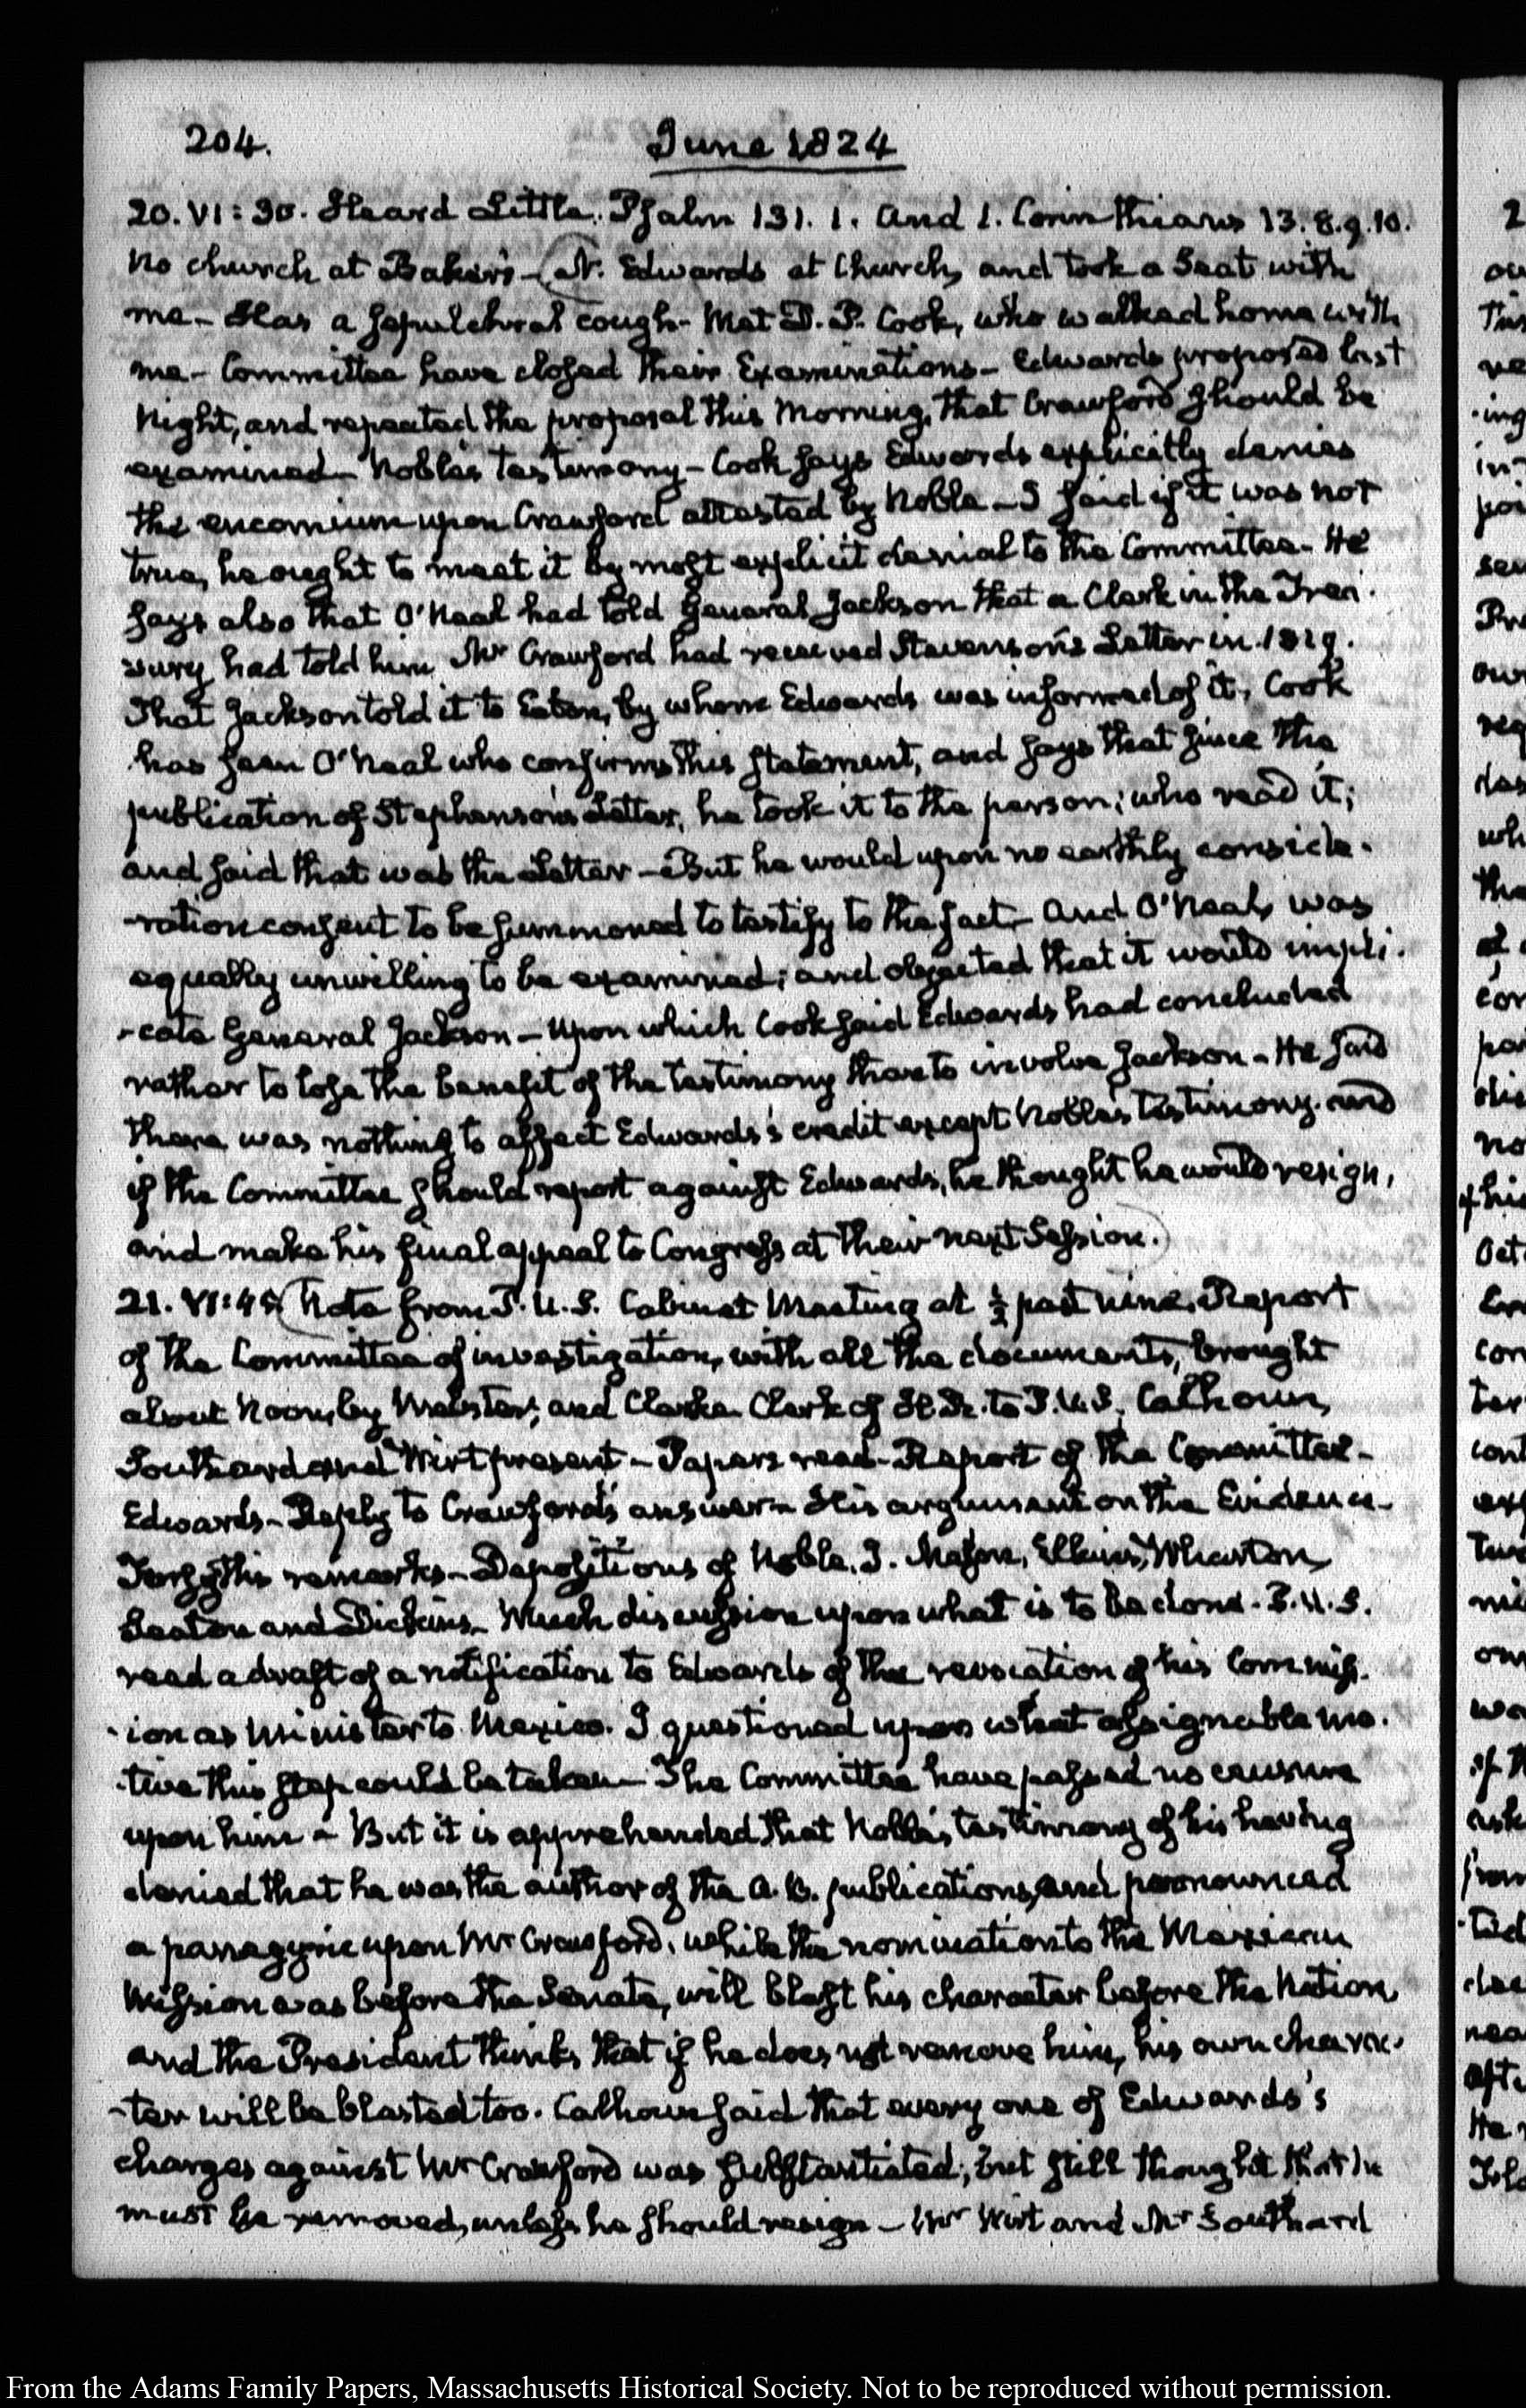 204.
June 1824
20. VI:30. Heard Little. Psalm 131. 1. and 1. Corinthians 13. 8.9.10.
No church at Baker's — (N. Edwards at Church, and took a Seat with
me — Has a sepulchral cough — Met D. P. Cook, who walked home with
me — Committee have closed their Examinations — Edwards proposed last
Night, and repeated the proposal this Morning, that Crawford should be
examined — Noble's testimony — Cook says Edwards explicitly denies
the encomium upon Crawford attested by Noble — I said if it was not
true, he ought to meet it by most explicit denial to the Committee — He
says also that O'Neal had told General Jackson that a Clerk in the Trea-
sury had told him Mr Crawford had received Stevenson's Letter in 1819.
That Jackson told it to Eaton, by whom Edwards was informed of it. Cook
has seen O'Neal who confirms this statement, and says that since the
publication of Stephenson's Letter, he took it to the person; who read it;
and said that was the Letter — But he would upon no earthly conside-
-ration consent to be summoned to testify to the fact — And O'Neal was
equally unwilling to be examined; and objected that it would impli-
-cate General Jackson — Upon which Cook said Edwards had concluded
rather to lose the benefit of the testimony than to involve Jackson — He said
there was nothing to affect Edwards's credit except Noble's testimony. and
if the Committee should report against Edwards, he thought he would resign,
and make his final appeal to Congress at their next Session.)
21. VI:45. (Note from P.U.S. Cabinet Meeting at ½ past nine. Report
of the Committee of investigation, with all the documents, brought
about Noon, by Webster, and Clarke Clerk of H.R. to P.U.S. Calhoun,
Southard and Wirt present — Papers read — Report of the Committee —
Edwards — Reply to Crawford's answer — His argument on the Evidence —
Forsyth's remarks — Depositions of Noble, J. Mason, Elkins, Wharton,
Seaton and Dickins. Much discussion upon what is to be done. P.U.S.
read a draft of a notification to Edwards of the revocation of his Commis-
-ion as Minister to Mexico. I questioned upon what assignable mo-
-tive this step could be taken — The Committee have passed no censure
upon him — But it is apprehended that Noble's testimony of his having
denied that he was the author of the A.B. publications, and pronounced
a panegyric upon Mr Crawford, while the nomination to the Mexican
Mission was before the Senate, will blast his character before the Nation,
and the President thinks that if he does not remove him, his own charac-
-ter will be blasted too. Calhoun said that every one of Edwards's
charges against Mr Crawford was substantiated; but still thought that he
must be removed, unless he should resign — Mr Wirt and Mr Southard
From the Adams Family Papers, Massachusetts Historical Society. Not to be reproduced without permission.